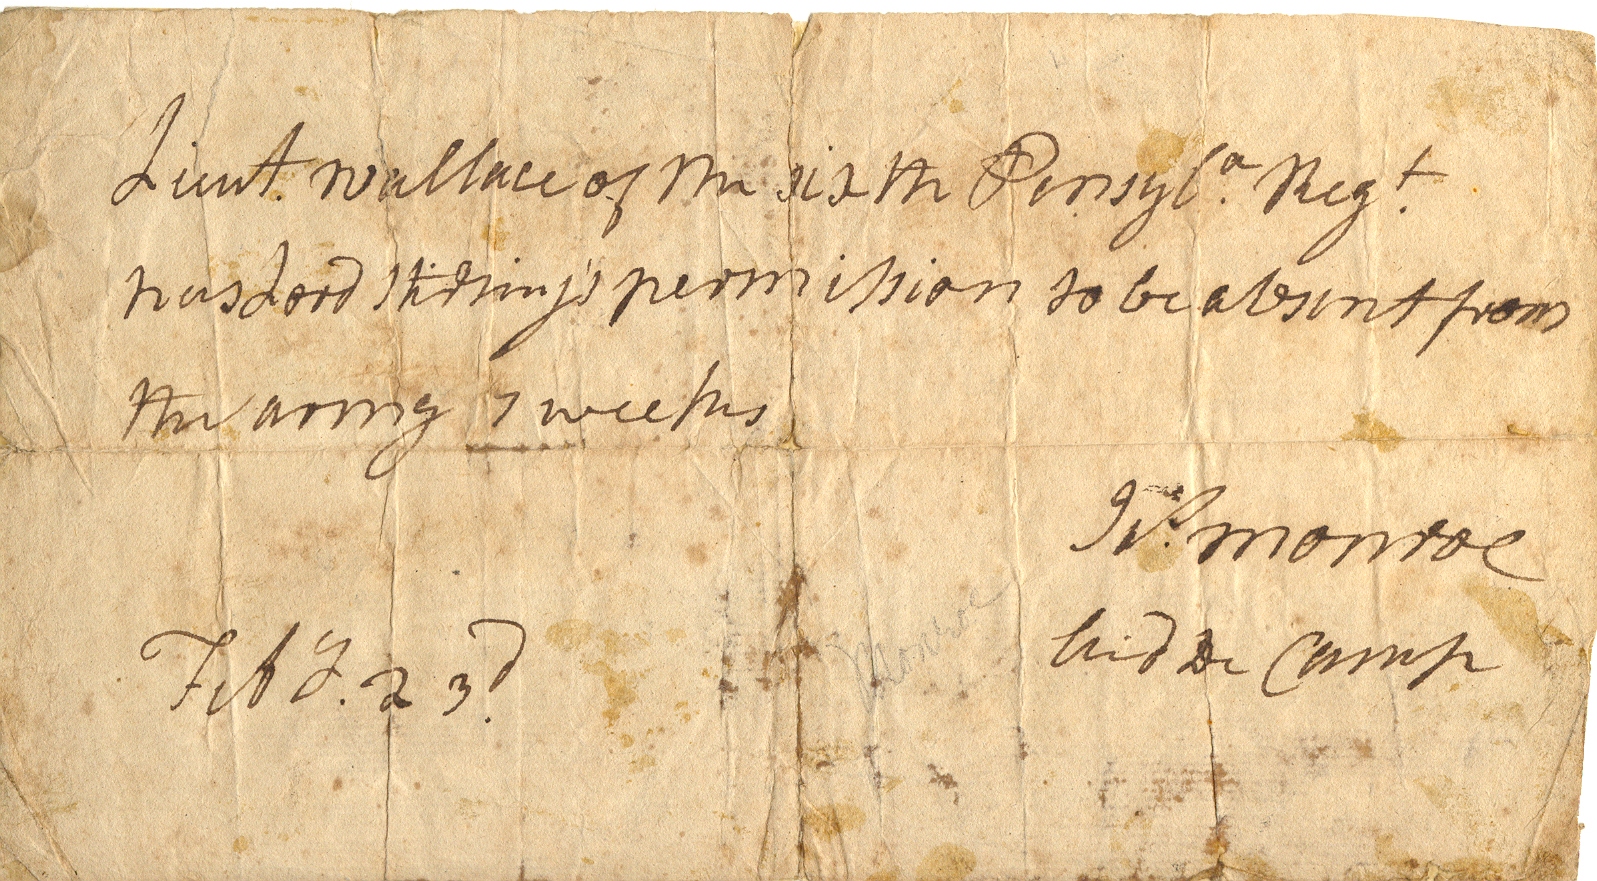 Lieut. Wallace of the sixth Pensylᵃ. Regᵗ.
has Lord Stirling's permission to be absent from
the army 7 weeks
Jaˢ. Monroe
Aid De Camp
Febʸ. 23ᵈ.
Monroe